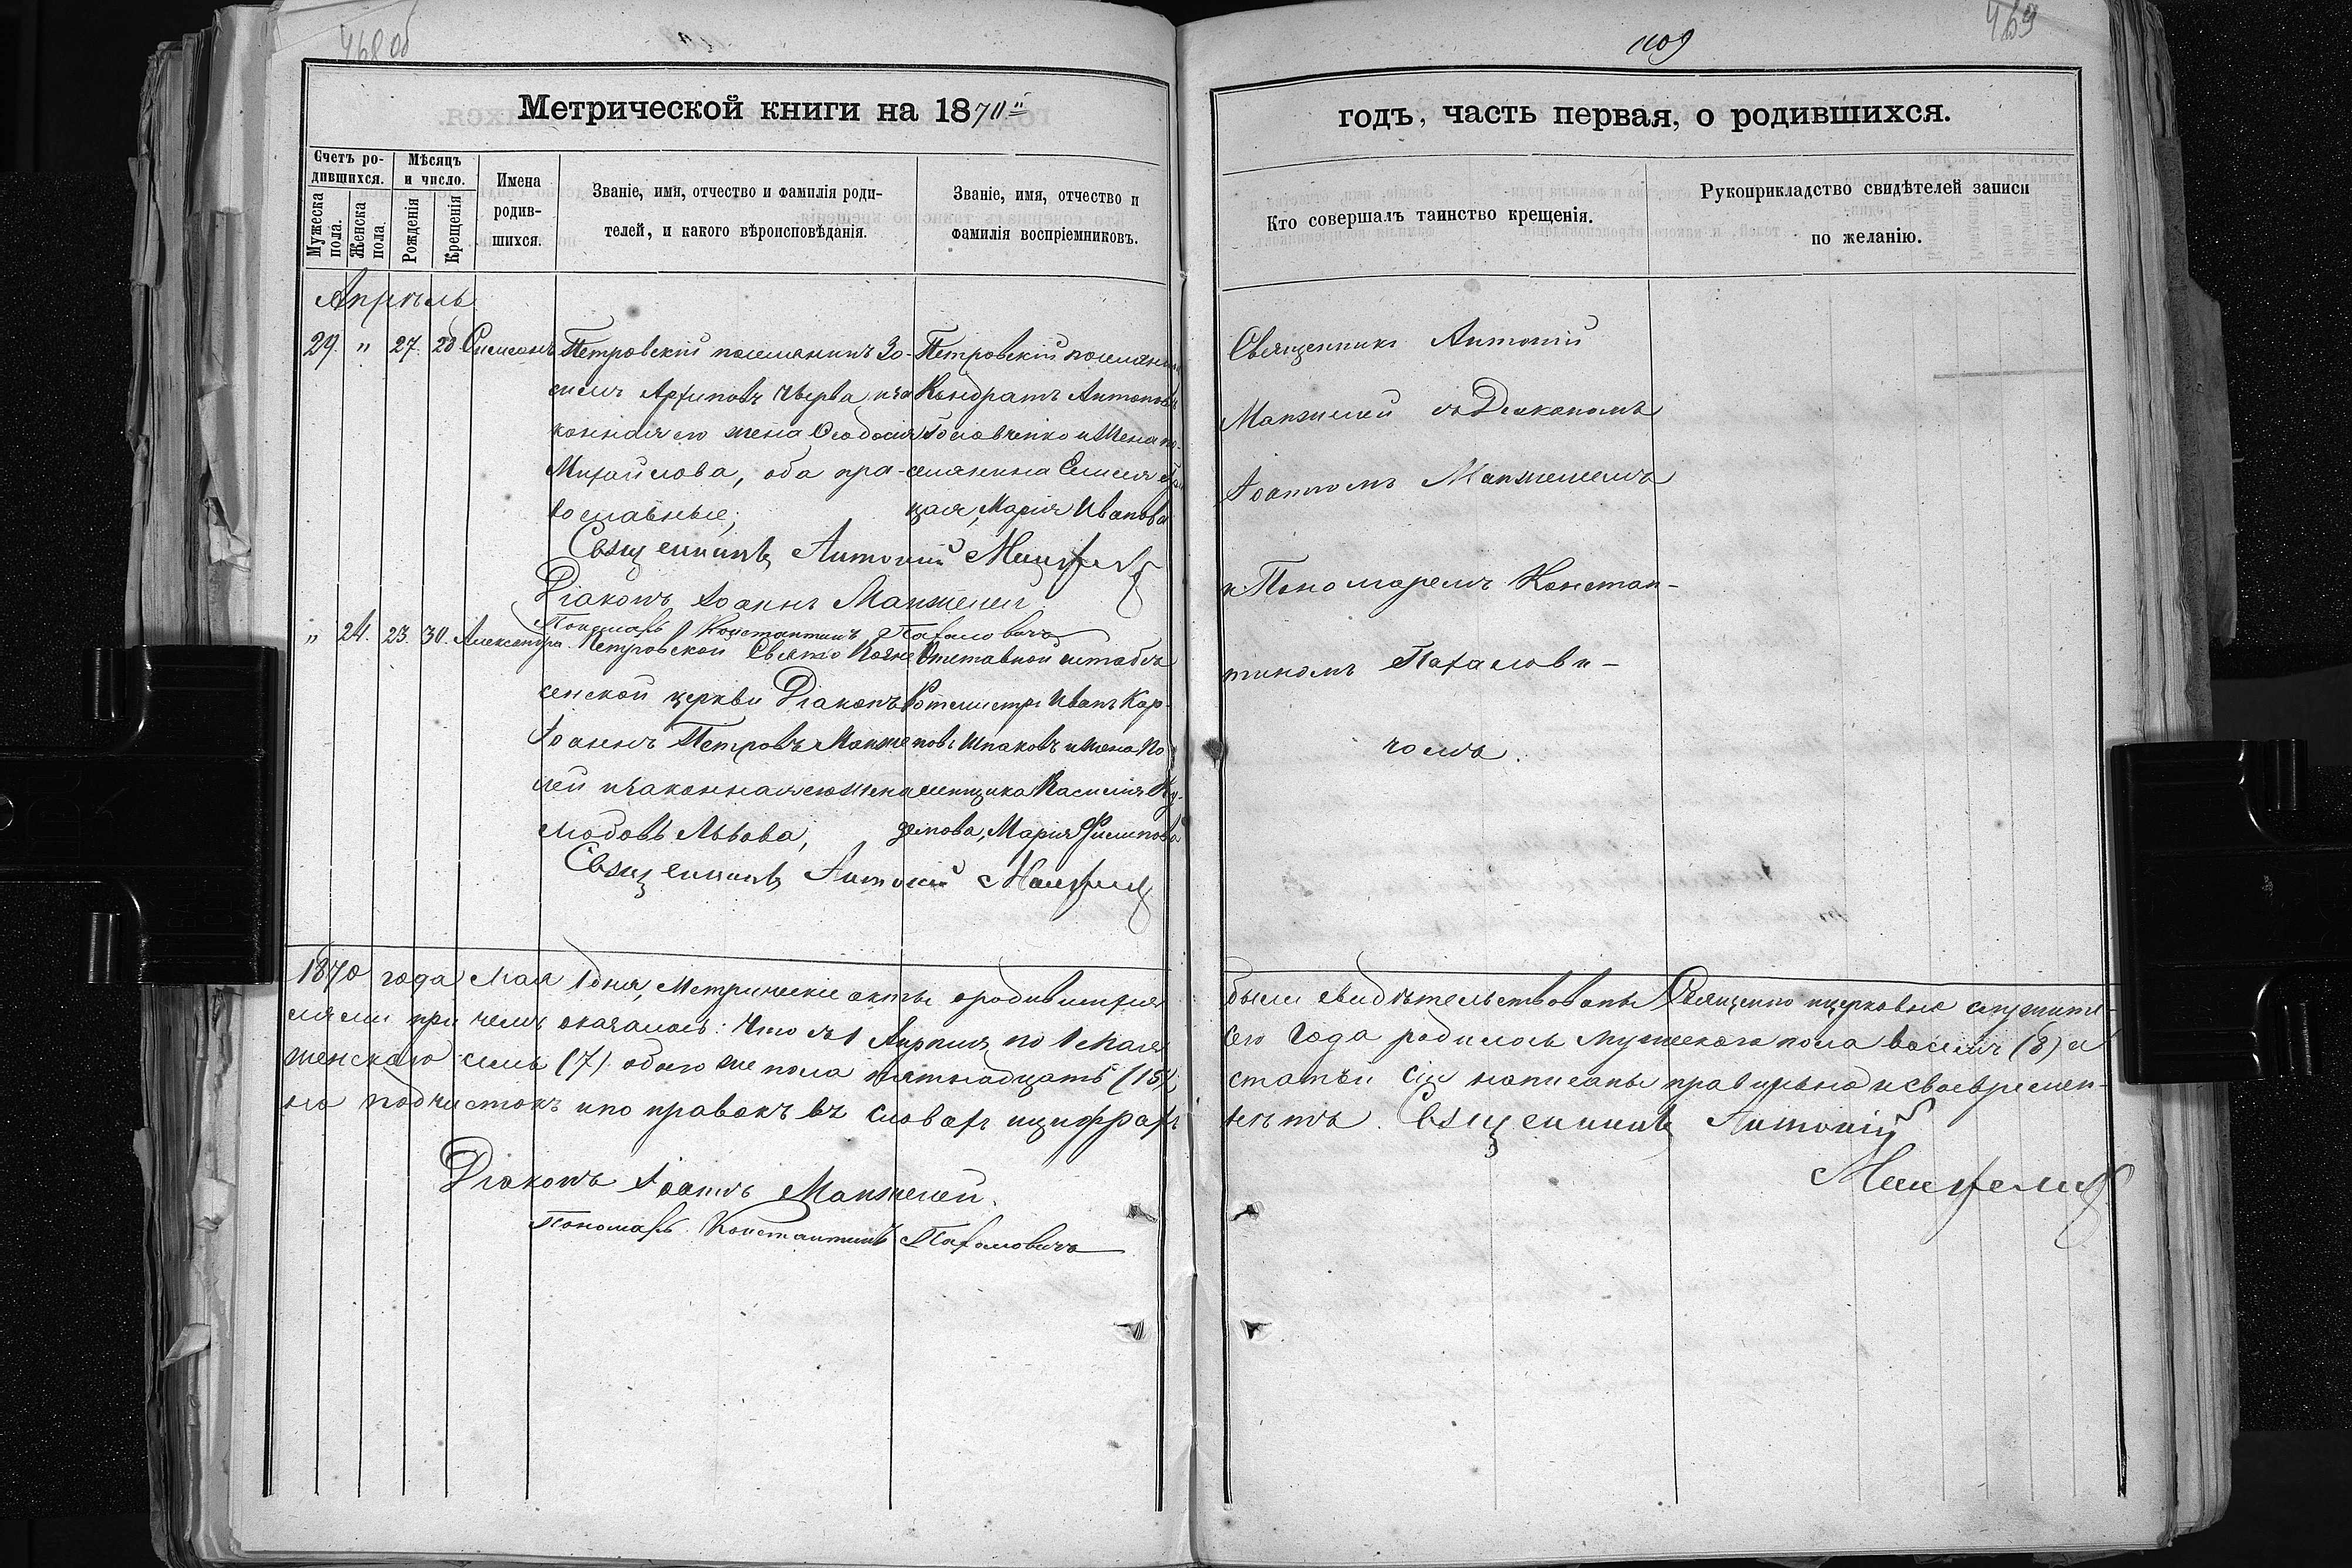 468 об
Метрической книги на 1870й
Счетъ ро-
дившихся.
Мужеска пола.
Женска пола.
Мѣсяцъ
и число.
Рожденія
Крещенія
Имена
родив-
шихся.
Званіе, имя, отчество и фамилія роди-
телей, и какого вѣроисповѣданія.
Званіе, имя, отчество и
фамилія воспріемниковъ.
Апрѣль
29. " 27. 28. Симеонъ
Петровскій поселянинъ Зо-
симъ Архиповъ Черва, и за
конная его жена Ѳеодосія
Михайлова, оба пра-
вославные;
Петровскій поселянинъ
Кондратъ Антоновъ
Головченко и жена по-
селянина
Марія Иванова
Священникъ Антоній Манжелей
Діаконъ Іоаннъ Манжелей
Пономарь Константинъ Пахаловичъ
" 24. 23. 30. Александра
Петровской Свято
сенской церкви Діаконъ
Іоаннъ Петровъ Манже
лей и законная его жена
Любовь Львова,
Отставной штабсъ
Ротмистръ Иванъ Кар-
повъ Шпаковъ и жена По
мещика Василія Ку-
демова, Марія Филипова
Священникъ Антоній Манжелей
1870 года Мая 1 дня, Метрическіе акты о родившихся
лями при чемъ оказалось: Что съ 1 Апреля по 1 Мая
женскаго семь (7) обоего же пола пятнадцать (15),
но подчистокъ и по правокъ въ словахъ и цифрахъ
Діаконъ Іоаннъ Манжелей.
Пономарь Константинъ Пахаловичъ
1109
469
годъ, часть первая, о родившихся.
Кто совершалъ таинство крещенія.
Рукоприкладство свидѣтелей записи
по желанію.
Священникъ Антоній
Манжелей съ Діакономъ
Іоанномъ Манжелеемъ
и Пономаремъ Констан-
тиномъ Пахалови-
чомъ.
были свидѣтельствованы Священно и церковно служите-
сего года родилось мужескаго пола восемь (8) а
статьи сіи написаны правильно и своевремен-
нѣтъ. Священникъ Антоній
Манжелей